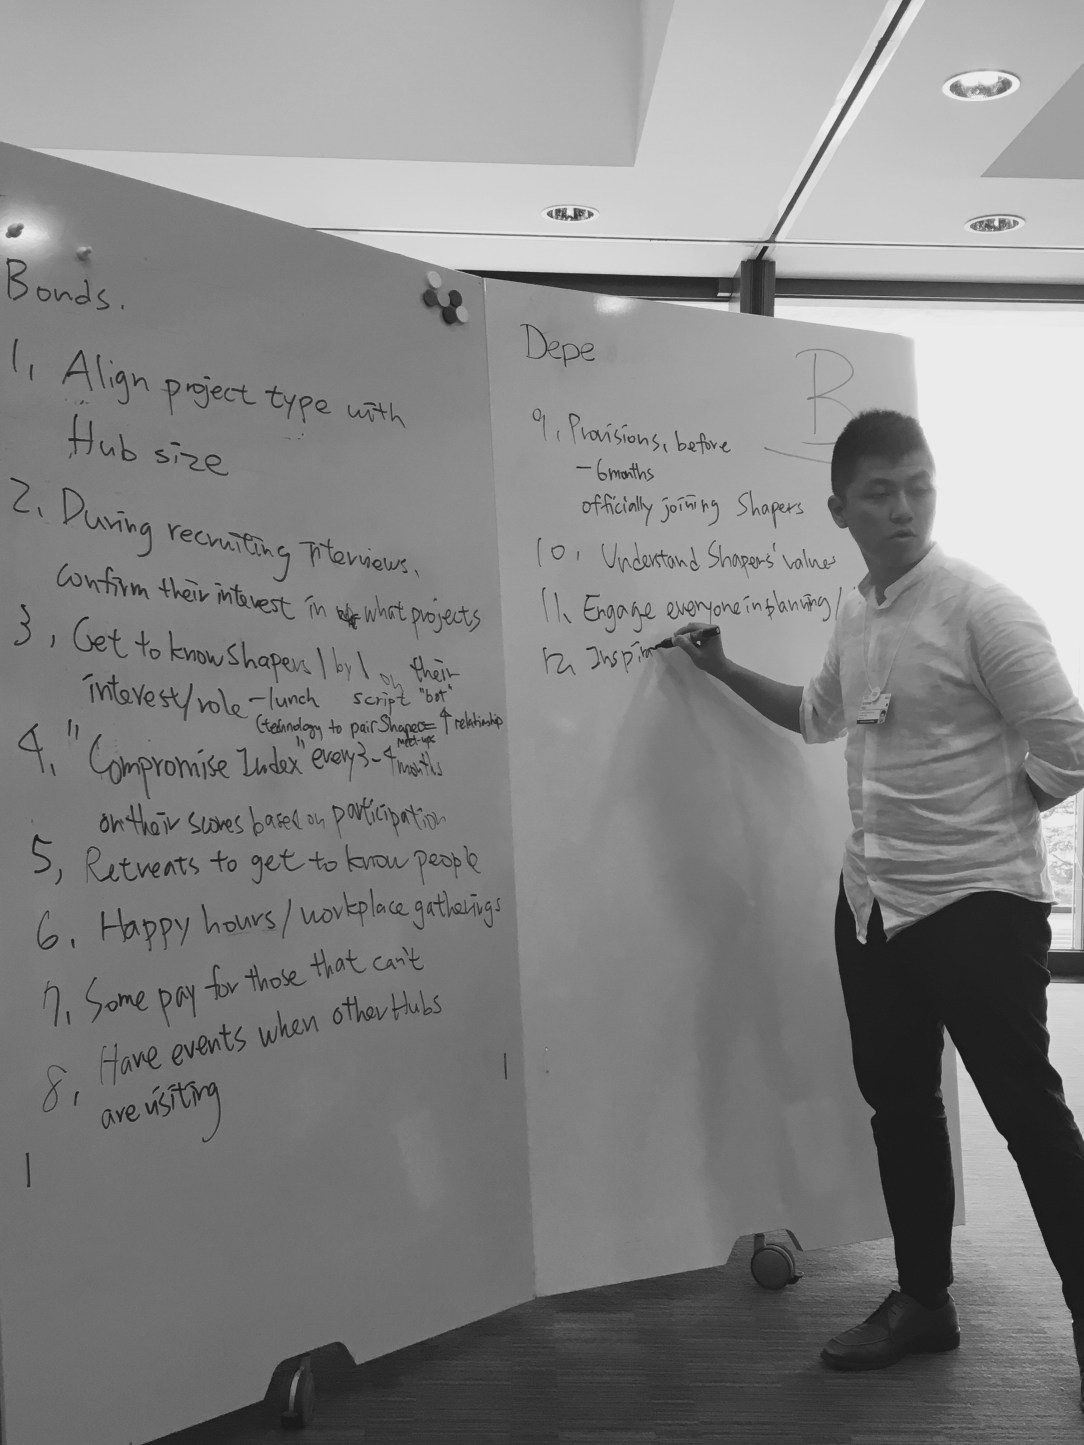 Bonds.
1, Align project type with
Hub size
2, During recruiting interviews,
confirm their interest in what projects
3, Get to know Shapers 1 by 1 on their
interest/role - lunch script "bot"
(technology to pair Shapers = ↑ relationship
meet-ups
4, "Compromise Index" every 3-4 months
on their scores based on participation
5, Retreats to get to know people
6, Happy hours/workplace gatherings
7, Some pay for those that can't
8, Have events when other Hubs
are visiting
Depe
B
9, Provisions, before
- 6 months
officially joining Shapers
10, Understand Shapers' values
11, Engage everyone in planning/
12, Inspir